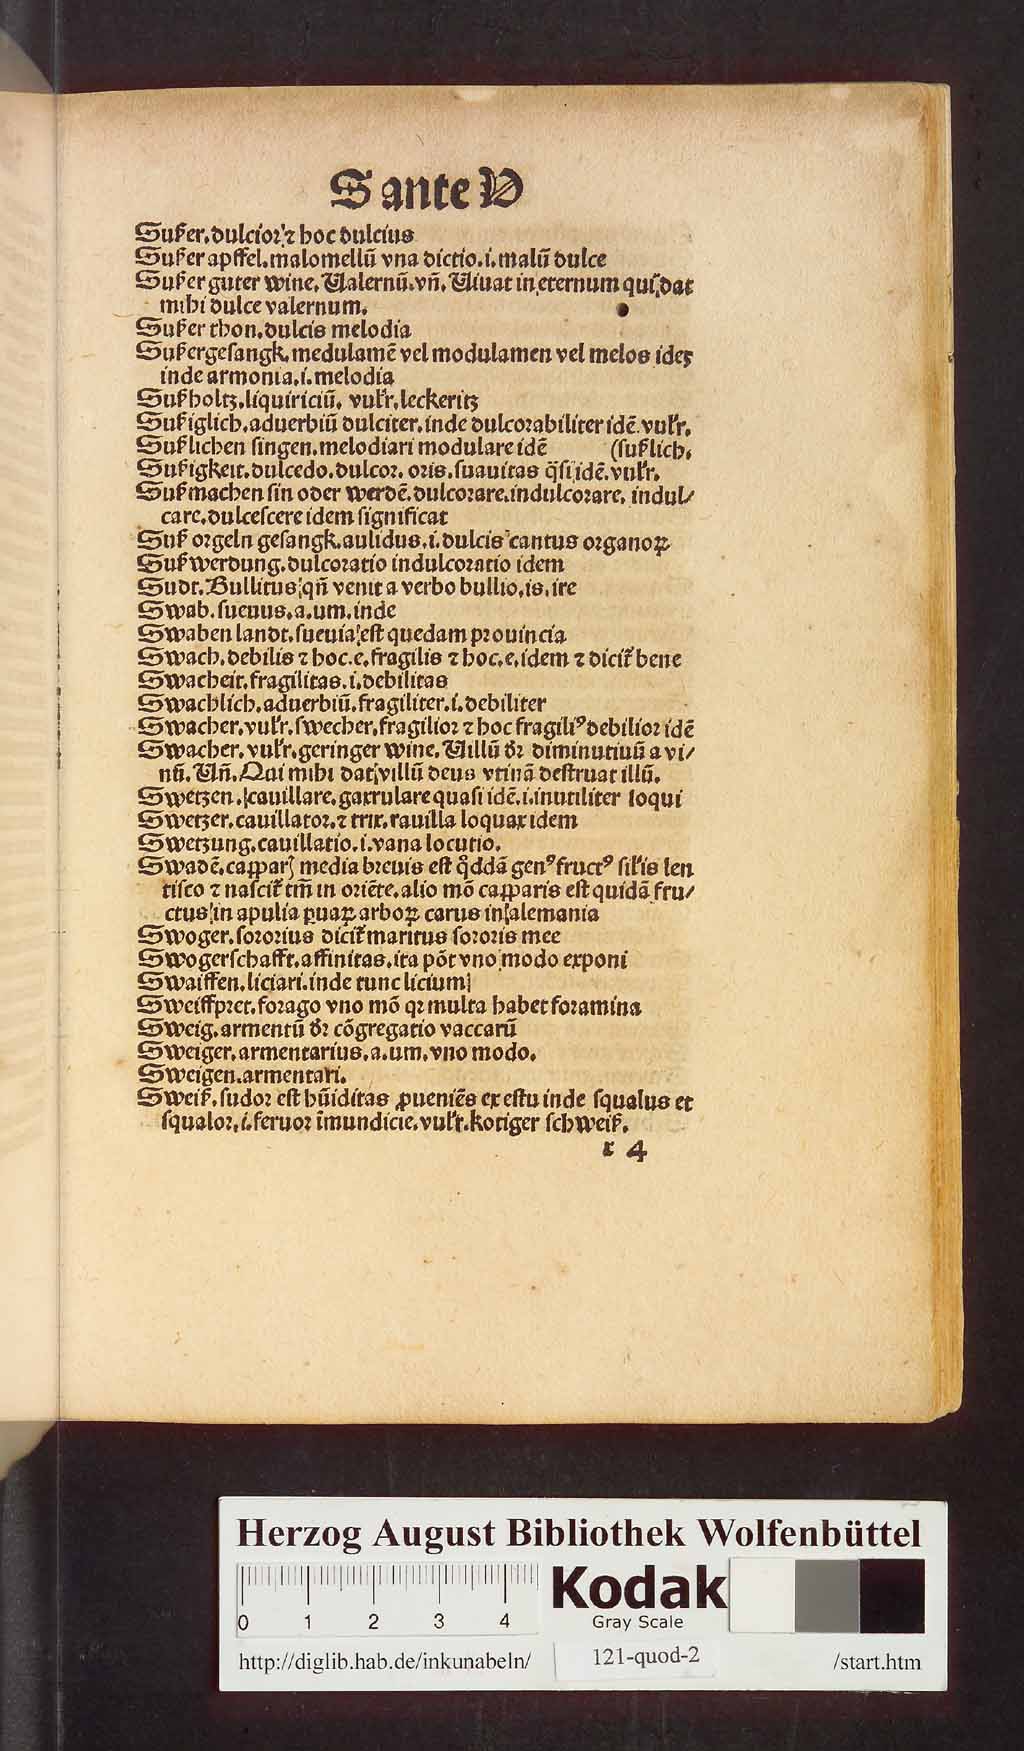 S ante V
Sußer.dulcior:⁊ hoc dulcius
Sußer apffel.malomellū vna dictio.i.malū dulce
Sußer guter wine.Ualernū.vñ.Uiuat in eternum qui dat
mihi dulce valernum.
Sußer thon.dulcis melodia
Sußergesangk.medulamē vel modulamen vel melos ideꝫ
inde armonia.i.melodia
Sußholtz.liquiriciū. vul'r.leckeritz
Sußiglich.aduerbiū dulciter.inde dulcorabiliter idē.vul'r.
Sußlichen singen.melodiari modulare idē (sußlich.
Sußigkeit.dulcedo.dulcor.oris.suauitas q̄si idē.vul'r.
Sußmachen sin oder werdē.dulcorare.indulcorare.indul/
care.dulcescere idem significat
Suß orgeln gesangk.aulidus.i.dulcis cantus organoꝝ
Sußwerdung.dulcoratio indulcoratio idem
Sudt.Bullitus qñ venit a verbo bullio.is.ire
Swab.sueuus.a.um.inde
Swaben landt.sueuia est quedam prouincia
Swach.debilis ⁊ hoc.e.fragilis ⁊ hoc.e.idem ⁊ dicit' bene
Swacheit.fragilitas.i.debilitas
Swachlich.aduerbiū.fragiliter.i.debiliter
Swacher.vul'r.swecher.fragilior ⁊ hoc fragiliꝰ debilior idē
Swacher.vul'r.geringer wine.Uillū dr̄ diminutiuū a vi/
nū.Uñ.Qui mihi dat villū deus vtinā destruat illū.
Swetzen.cauillare.garrulare quasi idē.i.inutiliter loqui
Swetzer.cauillator.⁊ trix.rauilla loquax idem
Swetzung.cauillatio.i.vana locutio.
Swadē.cappar) media breuis est q̊ddā genꝰ fructꝰ sil'is len
tisco ⁊ nascit' tm̄ in oriēte.alio mō capparis est quidā fru/
ctus in apulia ꝑuaꝝ arboꝝ carus in alemania
Swoger.sororius dicit' maritus sororis mee
Swogerschafft.affinitas.ita pōt vno modo exponi
Swaiffen.liciari.inde tunc licium
Sweiffpret.forago vno mō qꝛ multa habet foramina
Sweig.armentū dr̄ cōgregatio vaccarū
Sweiger.armentarius.a.um.vno modo.
Sweigen.armentari.
Sweiß.sudor est hūiditas ꝓueniēs ex estu inde squalus et
squalor.i.feruor īmundicie.vul'r.kotiger schweiß.
r 4
Herzog August Bibliothek Wolfenbüttel
0 1 2 3 4
Kodak
Gray Scale
http://diglib.hab.de/inkunabeln/ 121-quod-2 /start.htm